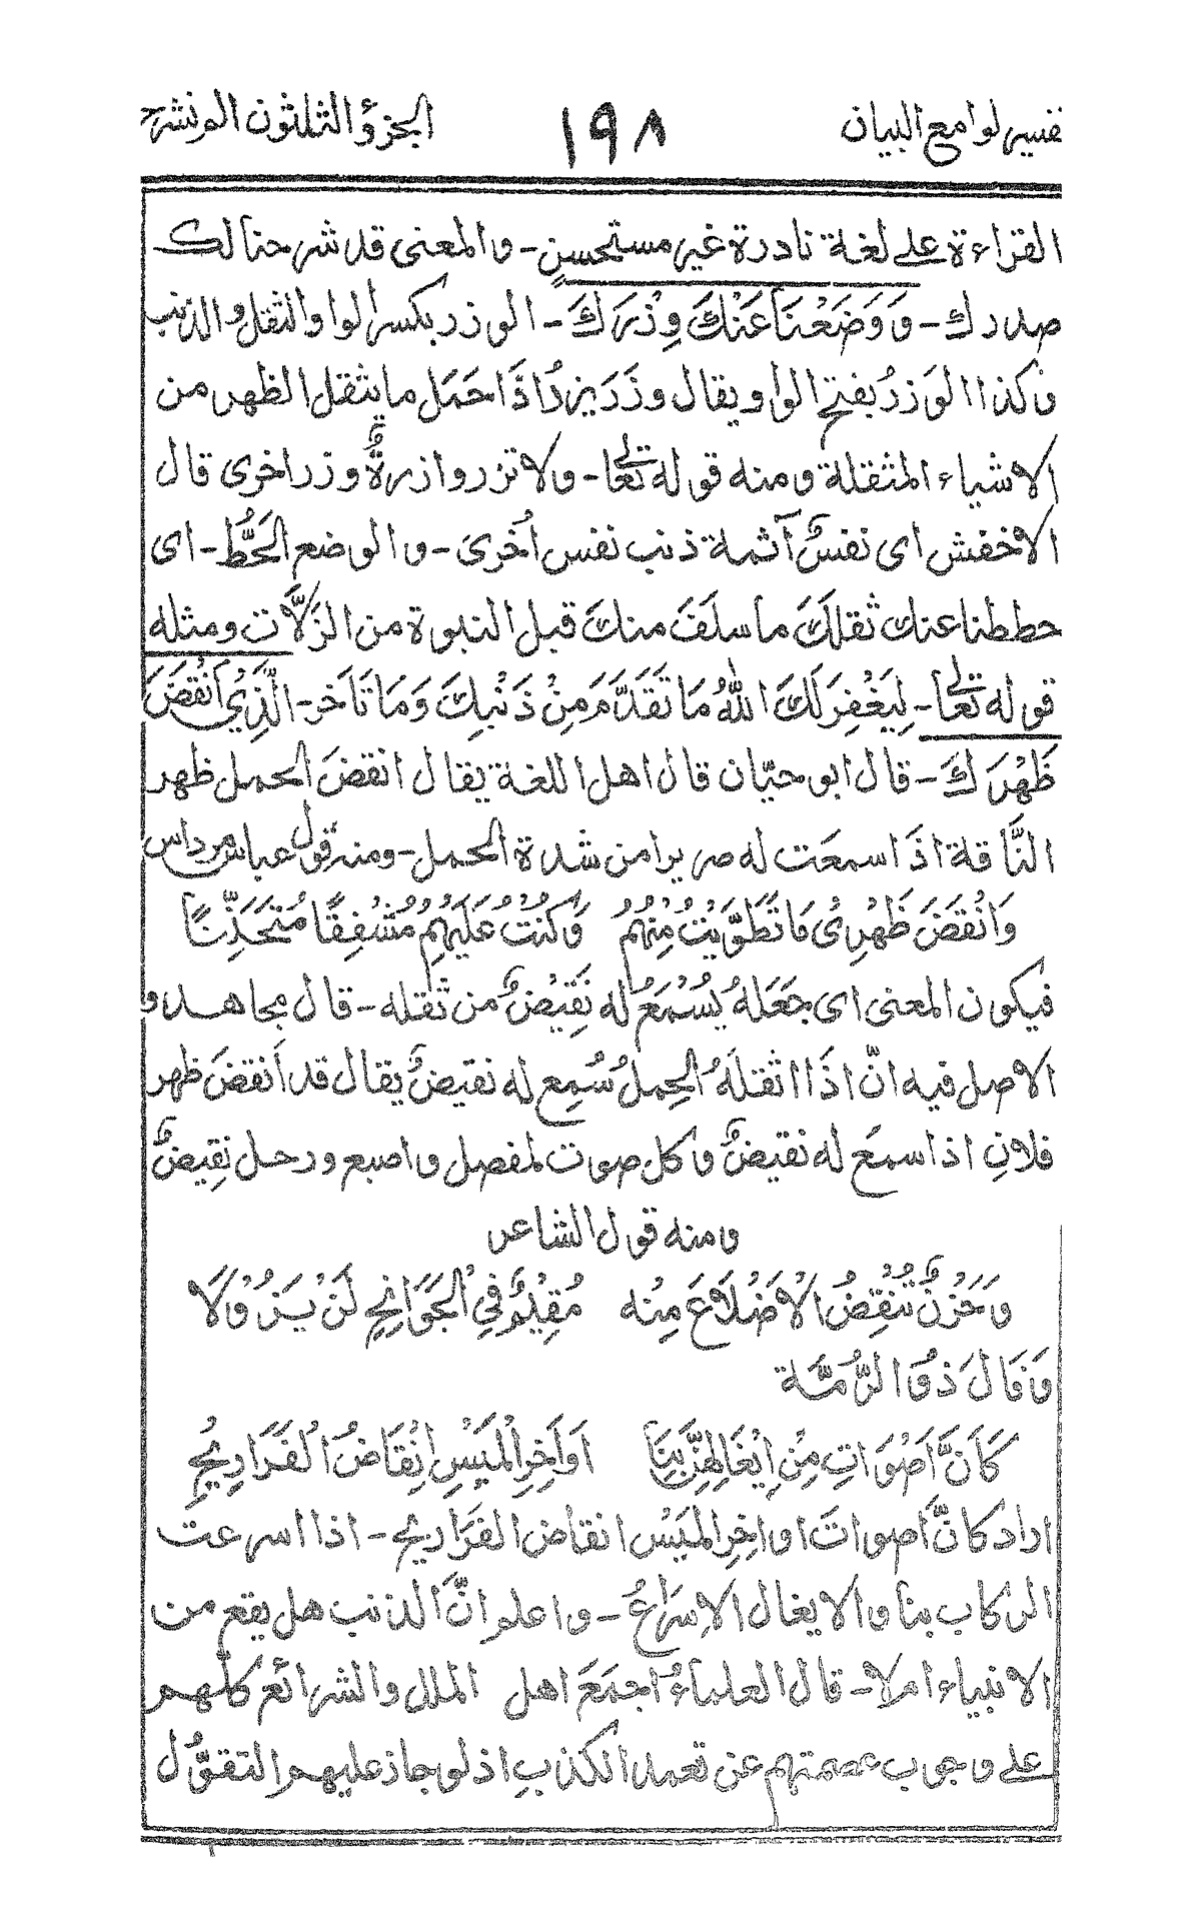 تفسير لوامع البيان ١٩٨ الجزؤ الثلثون الم نشرح
القراءة على لغة نادرة غير مستحسن - و المعنى قد شرحنا لك
صدرك - وَ وَضَعْنَا عَنْكَ وِزْرَكَ - الوزر بكسر الوا والثقل والذنب
وكذا الوَزرُ بفتح الوا ويقال وزَرَ يزرُ اذَا حَمَل ما يثقل الظهر من
الاشياء المثقلة ومنه قوله تعالى - ولا تزر وازرةٌ وزر اخرى قال
الاخفش اى نفسٌ آثمة ذنب نفس اُخرىَ - و الوضع الحَطُّ - اى
حططنا عنك ثقلكَ ما سلَفَ منكَ قبل النبوة من الزَلَّات ومثله
قوله تعالى - لِيَغْفِرَ لَكَ اللهُ مَا تَقَدَّمَ مِنْ ذَنْبِكَ وَمَا تَاَخر - الَّذِيْ اَنْقَضَ
ظَهْرَكَ - قال ابو حيّان قال اهل اللغة يقال انقضَ الحمل ظهر
النَّاقة اذَا سمعَت له صريرا من شدة الحمل - ومنه قول عباس مرداس
وَاَنْقَضَ ظَهْرِىْ مَا تَطَوَّيْتُ مِنْهُمْ وَكُنْتُ عَلَيْهِمْ مُشْفِقًا مُتَحَنِّنًا
فيكون المعنى اى جَعَلهُ يُسْمَعُ له نَقِيْضٌ من ثقله - قال مجاهد و
الاصل فيه انّ اذَا اثقلَهُ الحِملُ سُمِع له نقيضٌ يقال قد اَنقضَ ظهر
فلانٍ اذا سمعَ له نقيضٌ وكل صوت لمفصل و اصبع ورحل نقِيضٌ
ومنه قول الشاعر
وَحَزْنٌ تُنْقِضُ الْاَضْلَاعَ مِنْه مُقِيْمٌ فِى الْجَوَانِحِ لَنْ يَزُوْلَا
وَقَالَ ذُو الرُّمَّة
كَاَنَّ اَصْوَاتِ مِنْ اِيْغَالِهِنَّ بِنَا اَوَاخِرِ الْمَيْسِ اِنْقَاضُ الْفَرَارِيْجِ
اراد كانَّ اصواتَ اواخِرِ الميَسْ انقاض الفَرَاريج - اذا اسرعت
الركاب بنا والايغال الاِسرَاعُ - واعلم انَّ الذنب هل يقع من
الانبياء ام لا - قال العلماءُ اجمَعَ اهل الملل والشرائع كلّهم
على وجوب عصمتهم عن تعمد الكذب اذ لو جاز عليهم التقوُّل